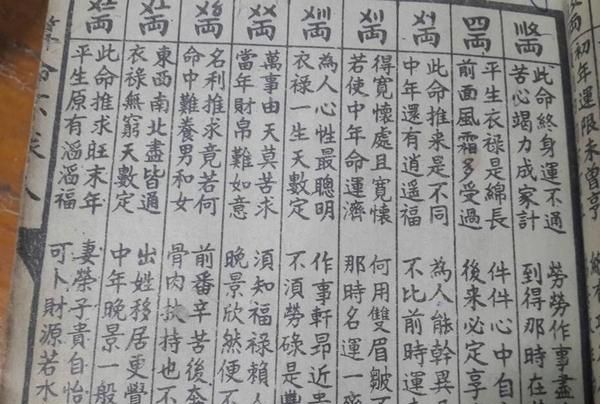 初年運限未曾亨
兩
此命終身運不通 勞勞作事盡
苦心竭力成家計 到得那時在
四兩
平生衣祿是綿長 件件心中自
前面風霜多受過 後来必定享
〤〡兩
此命推来是不同 為人能幹異
中年還有逍遥福 不比前時運
〤〢兩
得寬懷處且寬懷 何用雙眉皺不
若使中年命運濟 那時名運一齊
〤〣兩
為人心性最聰明 作事軒昂近貴
衣祿一生天數定 不須勞碌是豐
〤〤兩
萬事由天莫苦求 須知福祿賴人
當年財帛難如意 晚景欣然便不
兩
名利推求竟若何 前番辛苦後奔
命中難養男和女 骨肉扶持也不
兩
東西南北盡皆通 出姓移居更覺
衣祿無窮天數定 中年晚景一般
兩
此命推求旺末年 妻榮子貴自怡
平生原有滔滔福 可卜財源若水